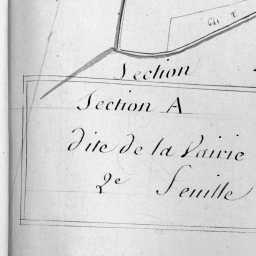 Section
Section A
dite de la Vairie
2e Feuille